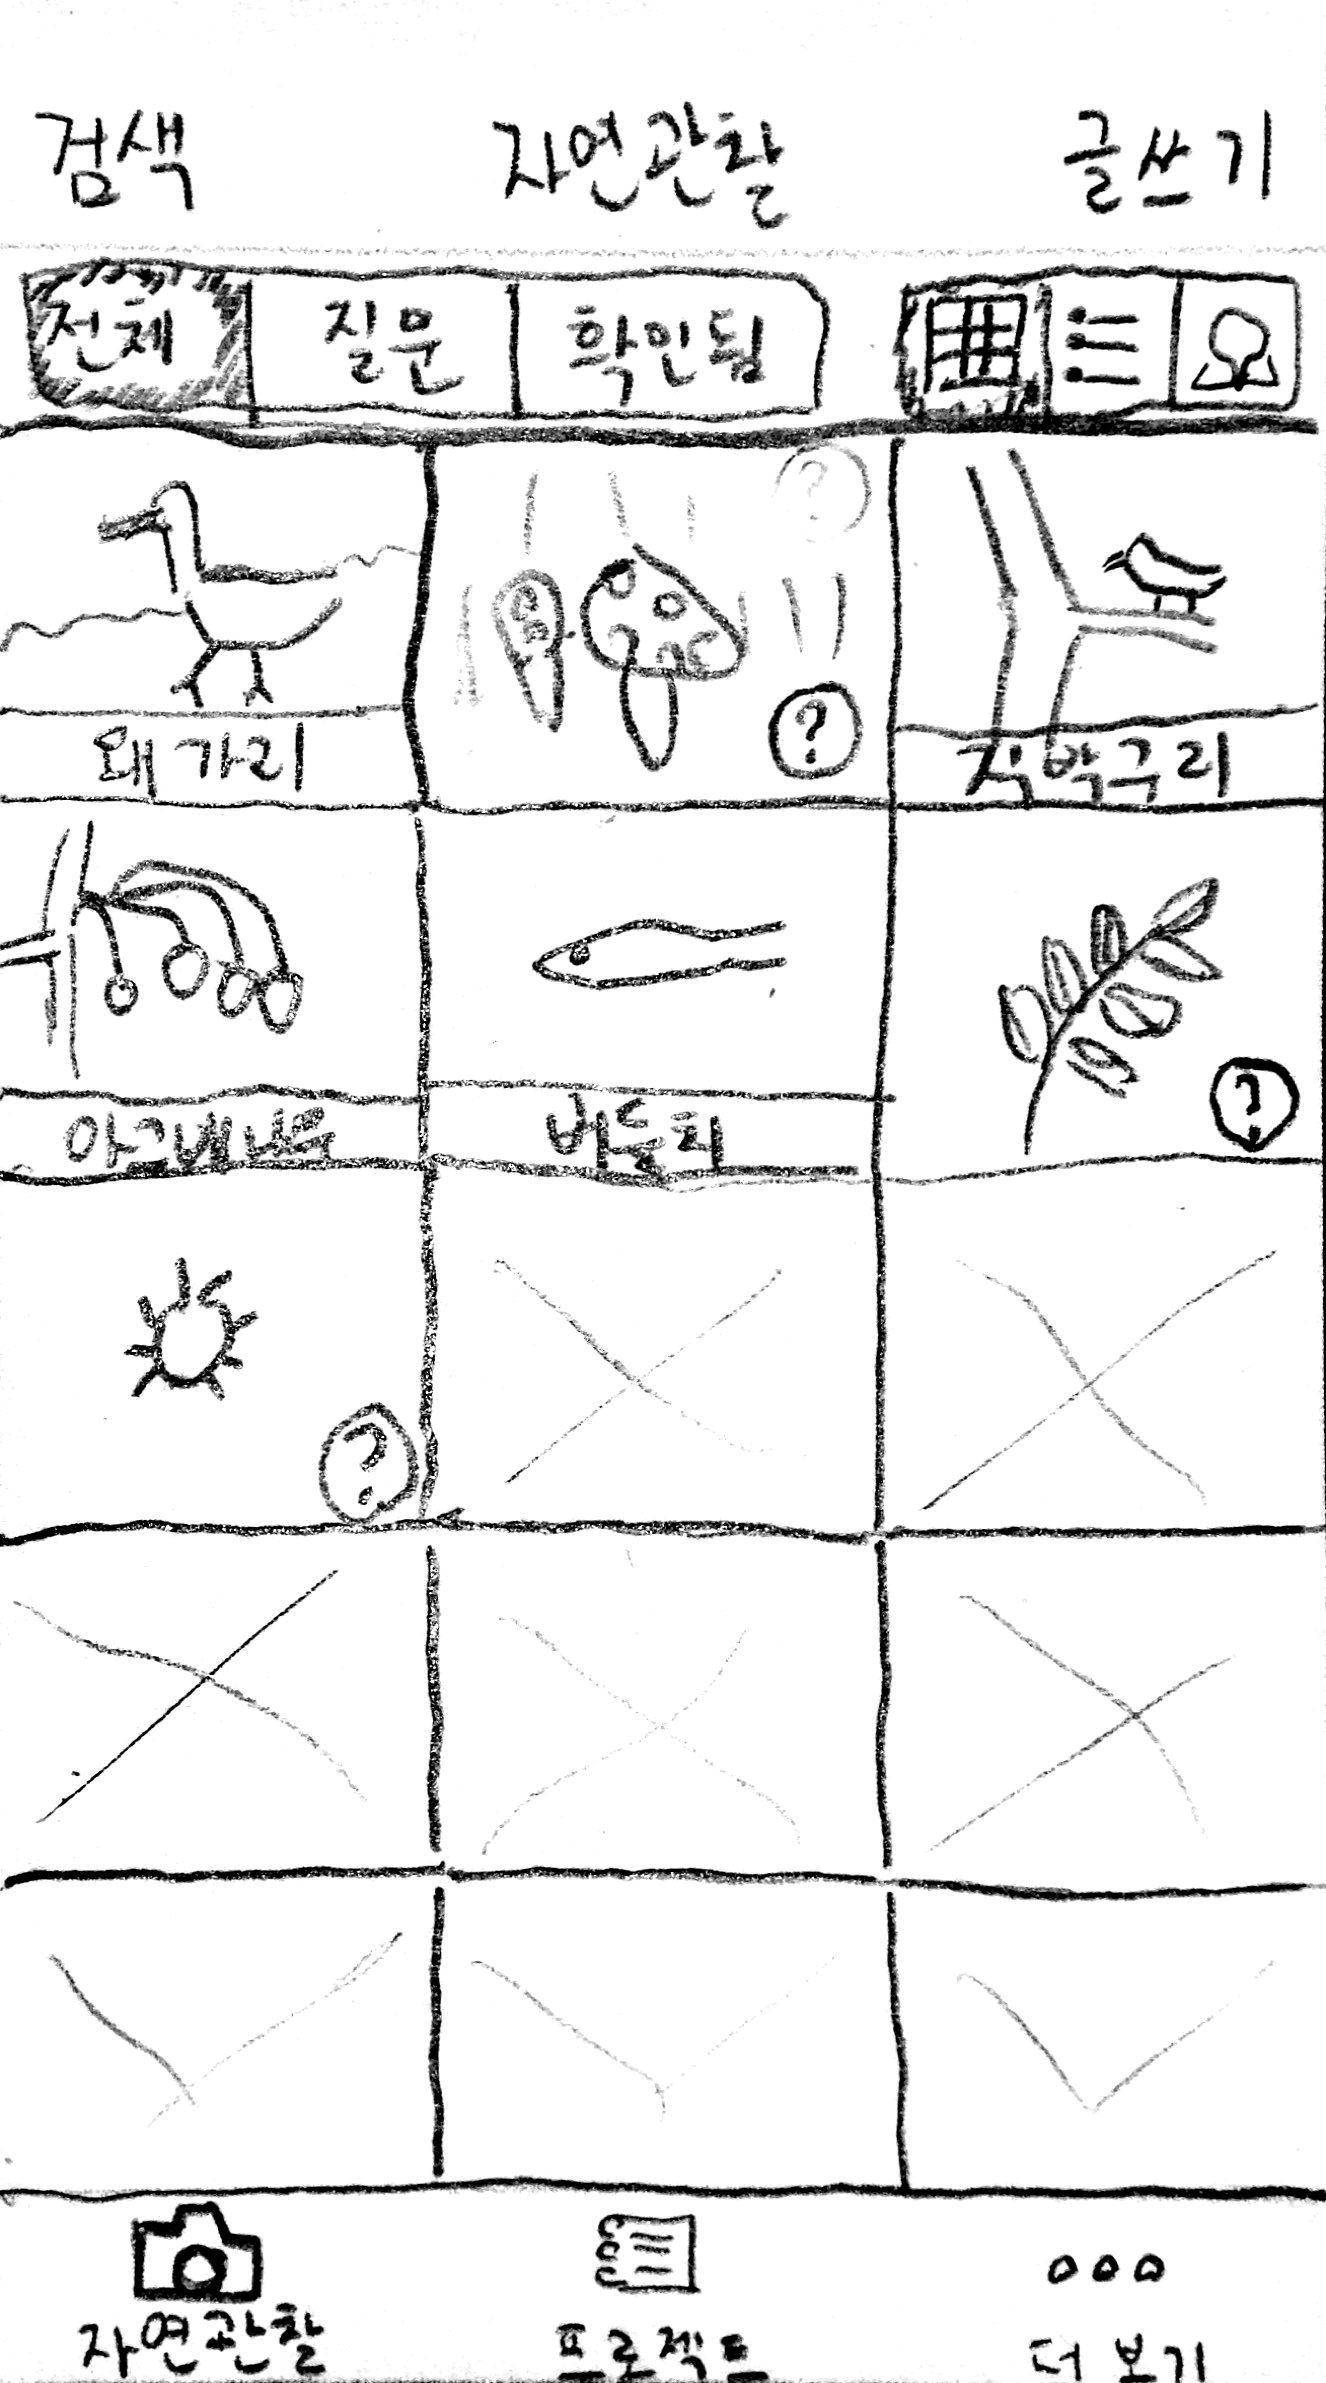 검색 자연관찰 글쓰기
전체 질문 확인됨
?
왜가리 ? 직박구리
버들치 ?
?
자연관찰 프로젝트 더보기